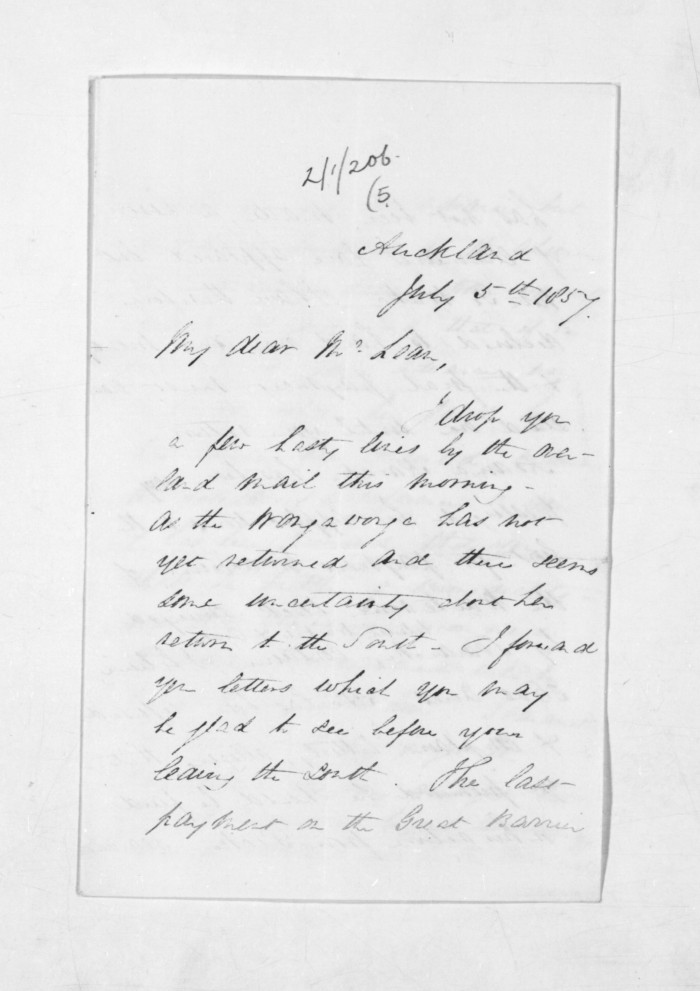 2/1/206.
(5.
Auckland
July 5th 1857.
My dear Mr. Lean,
I drop you
a few hasty lines by the over-
land mail this morning -
as the Wonga wonga has not
yet returned and there seems
some uncertainty abt her
return to the South - I forward
you letters which you may
be glad to see before your
leaving the South. The last
payment on the Great Barrier